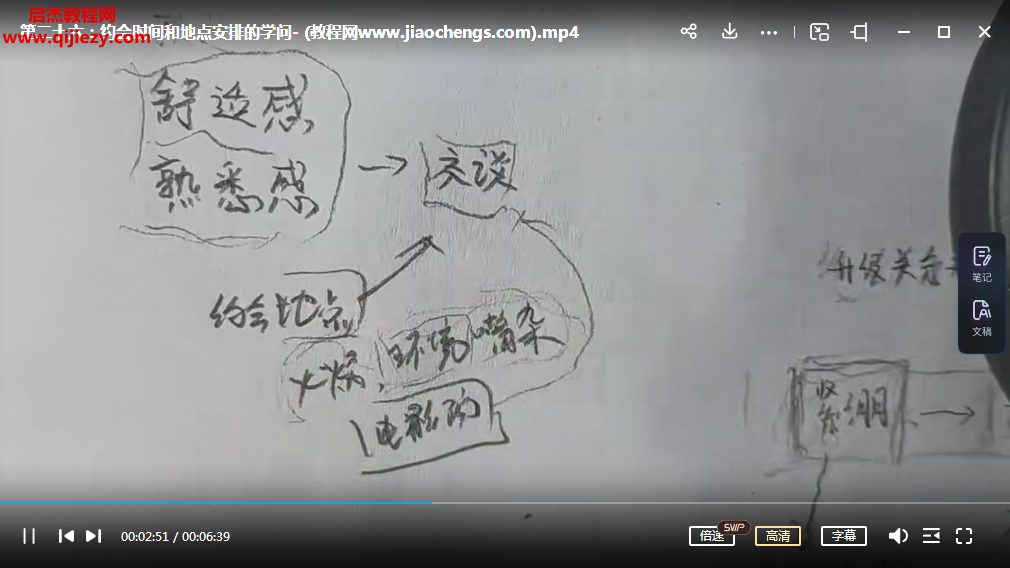 启杰教程网
www.qijiezy.com
第二十六：约会时间和地点安排的学问- (教程网www.jiaochengs.com).mp4
舒适感
熟悉感
→ 交谈
约会地点
火锅，环境嘈杂
电影院
升级关系
紧绷 →
笔记
文稿
00:02:51 / 00:06:39
倍速
SVIP
高清
字幕